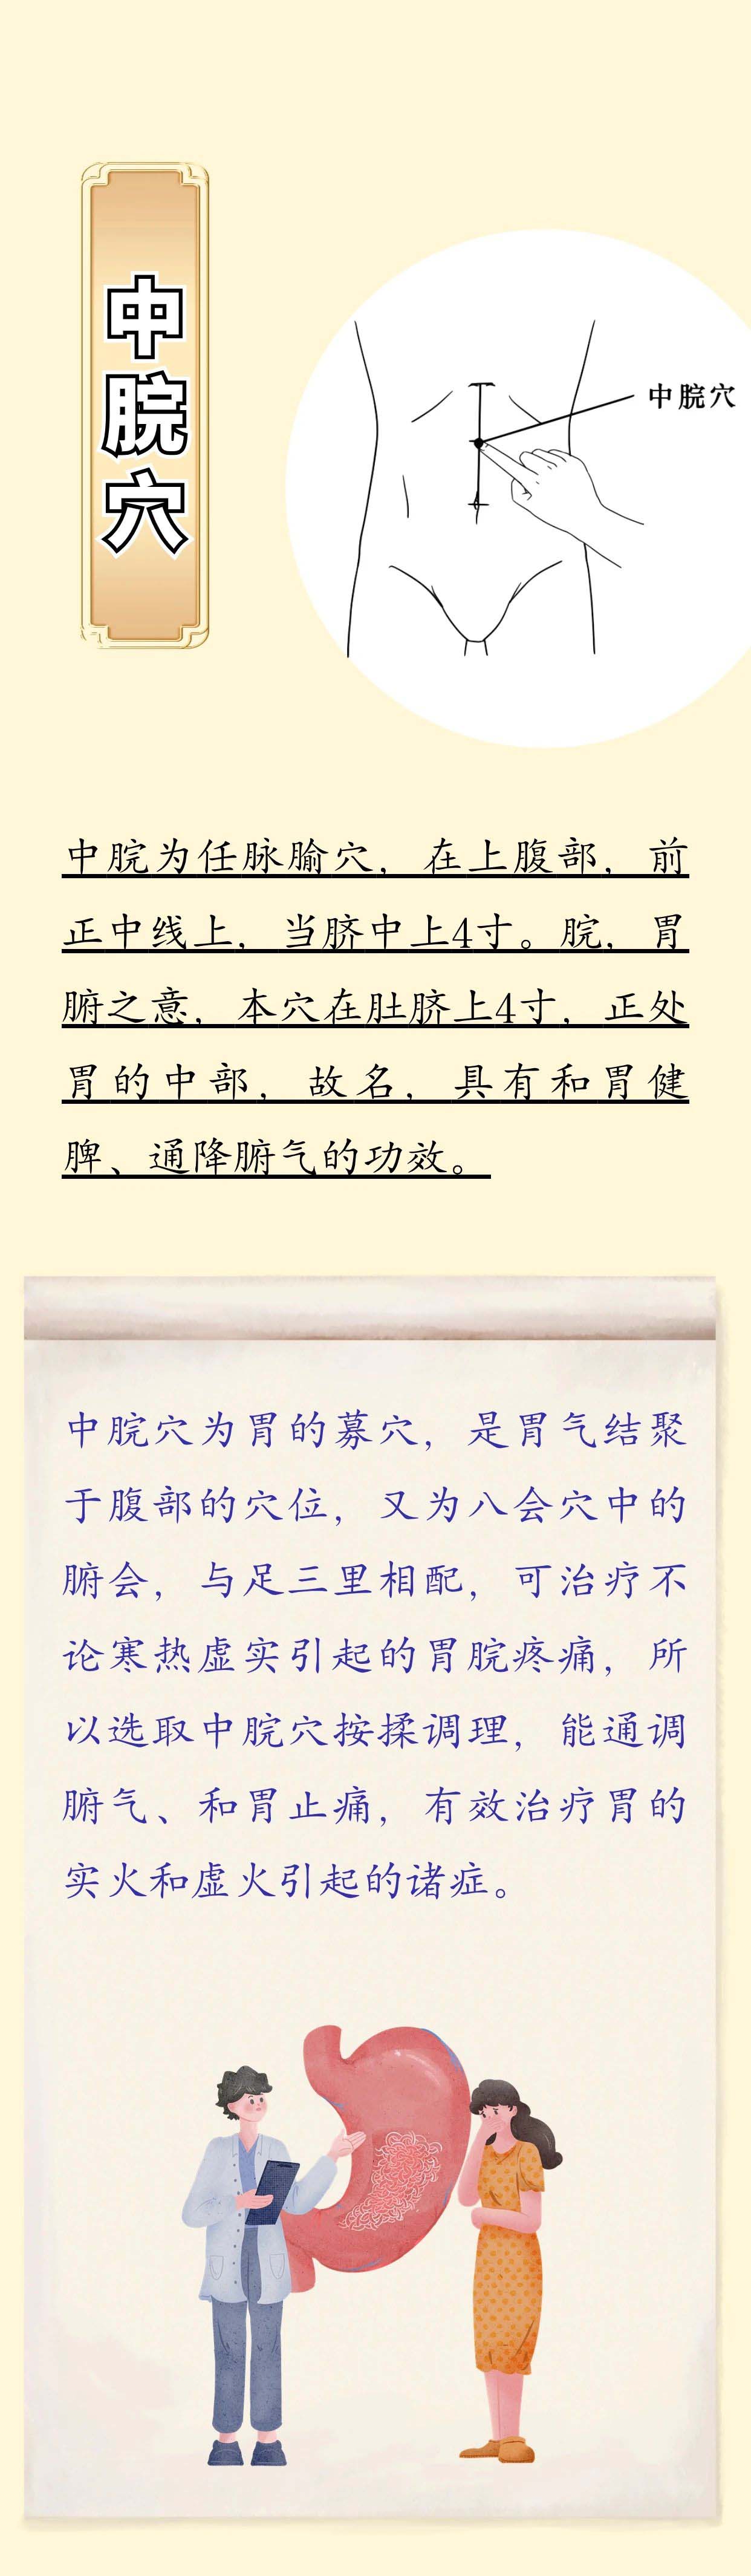 中脘穴
中脘穴
中脘为任脉腧穴，在上腹部，前
正中线上，当脐中上4寸。脘，胃
腑之意，本穴在肚脐上4寸，正处
胃的中部，故名，具有和胃健
脾、通降腑气的功效。
中脘穴为胃的募穴，是胃气结聚
于腹部的穴位，又为八会穴中的
腑会，与足三里相配，可治疗不
论寒热虚实引起的胃脘疼痛，所
以选取中脘穴按揉调理，能通调
腑气、和胃止痛，有效治疗胃的
实火和虚火引起的诸症。